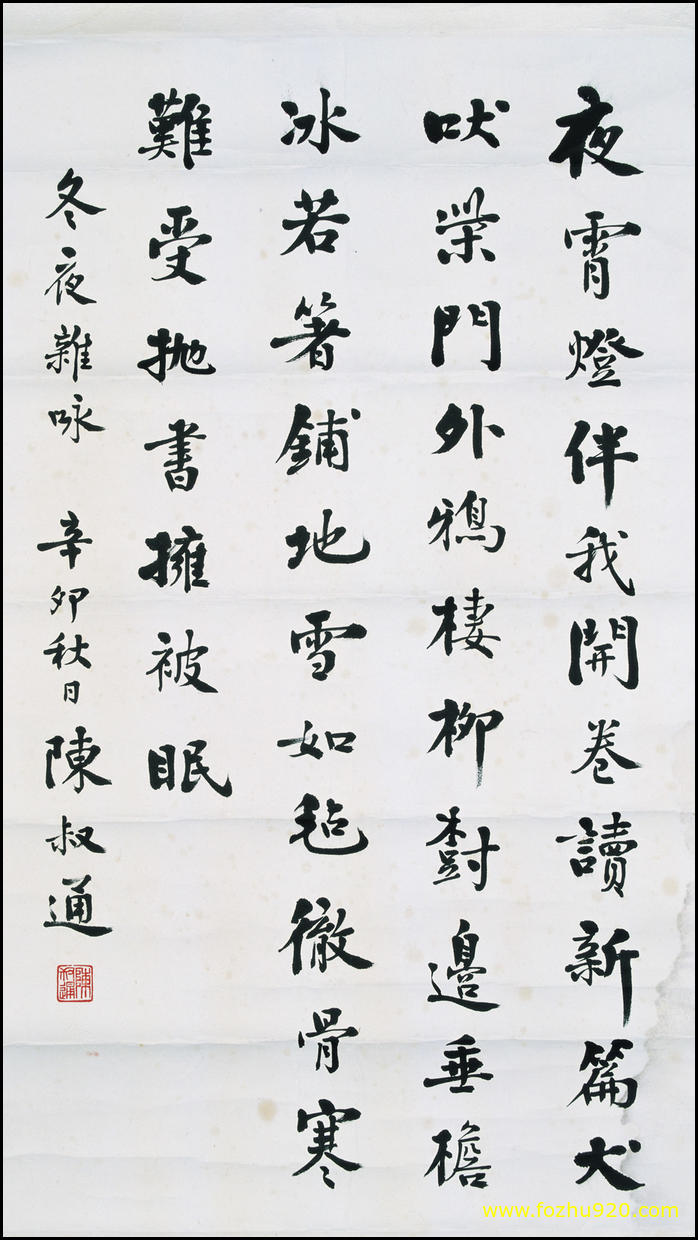 夜霄燈伴我開卷讀新篇犬
吠柴門外鴉棲柳樹邊垂檐
冰若箸鋪地雪如毡徹骨寒
難受抛書擁被眠
冬夜雜咏 辛卯秋日 陳叔通
陳叔通
www.fozhu920.com